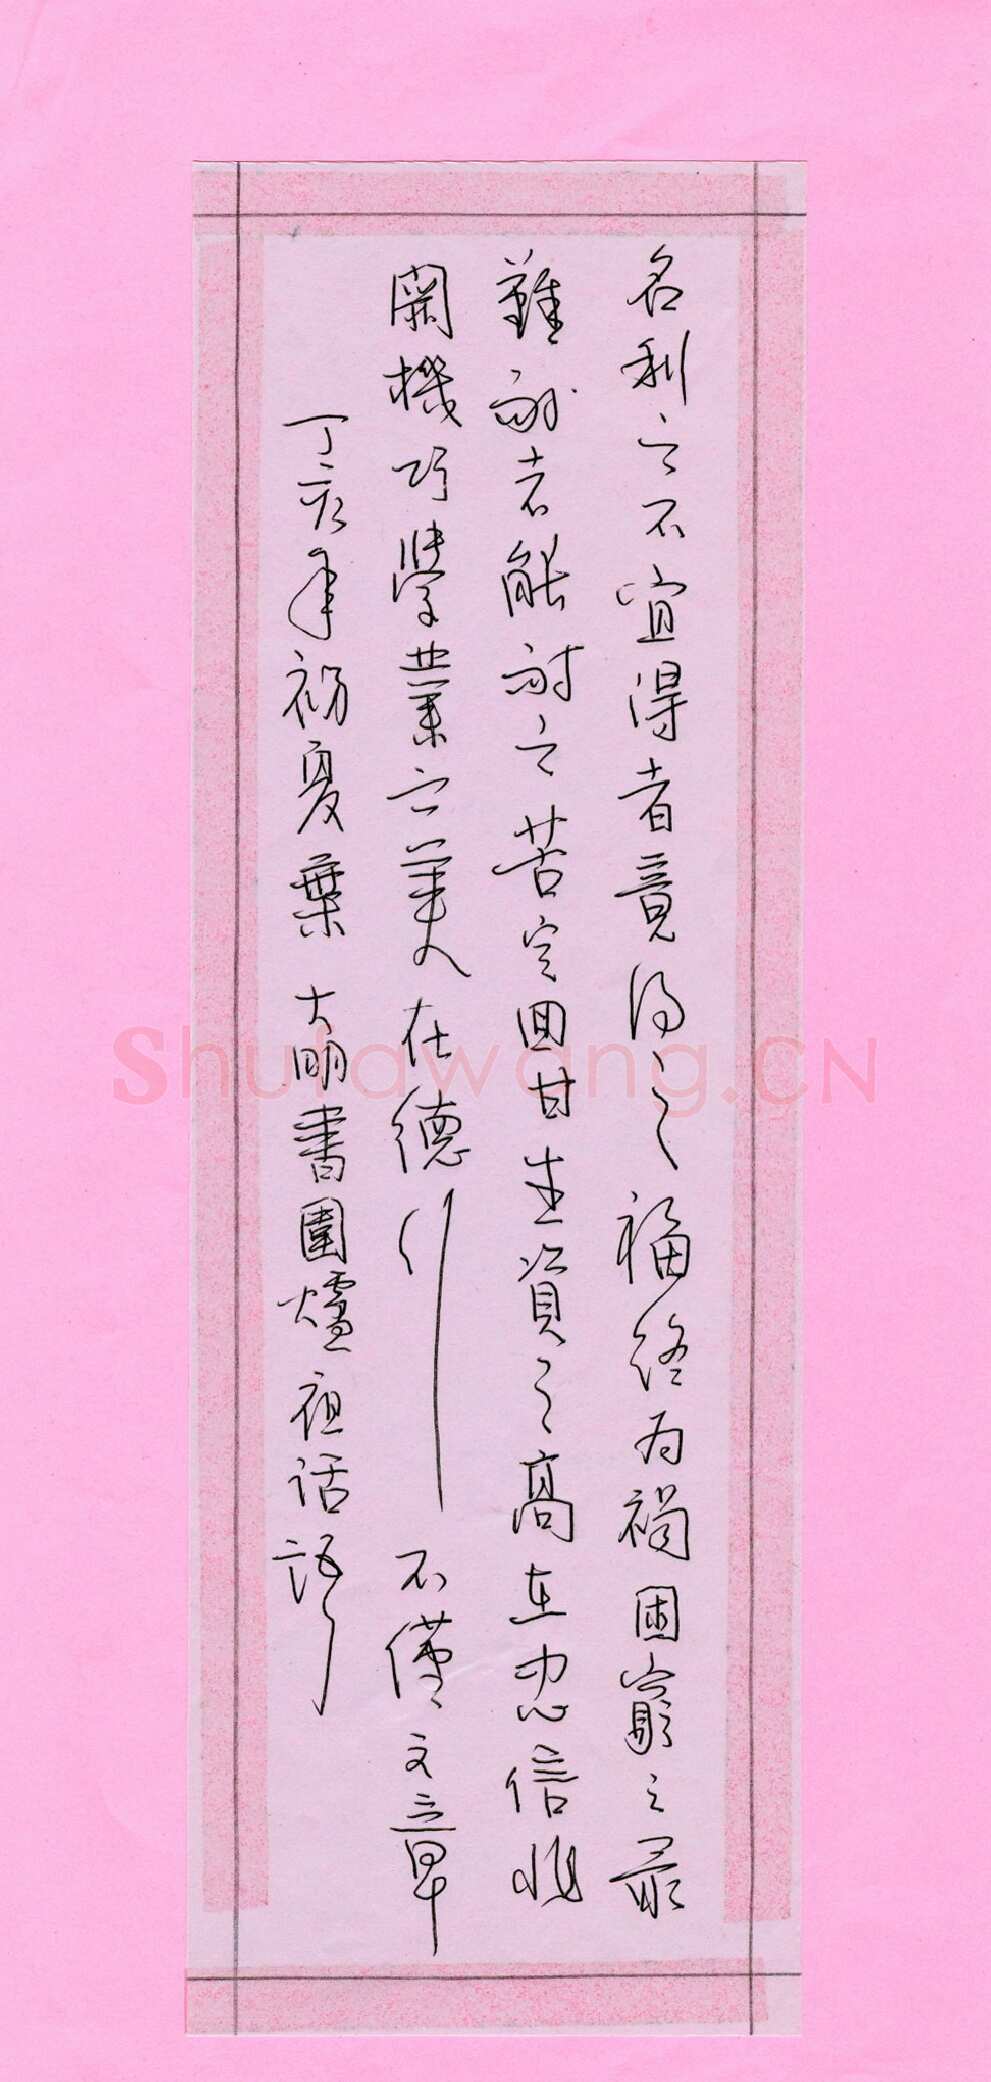 名利之不宜得者竟得之福終为禍困窮之最
難耐者能耐之苦定回甘生資之高在忠信非
關機巧學業之美在德行不僅文章
丁亥年初夏葉大明書圍爐夜話語
Shufawang.CN